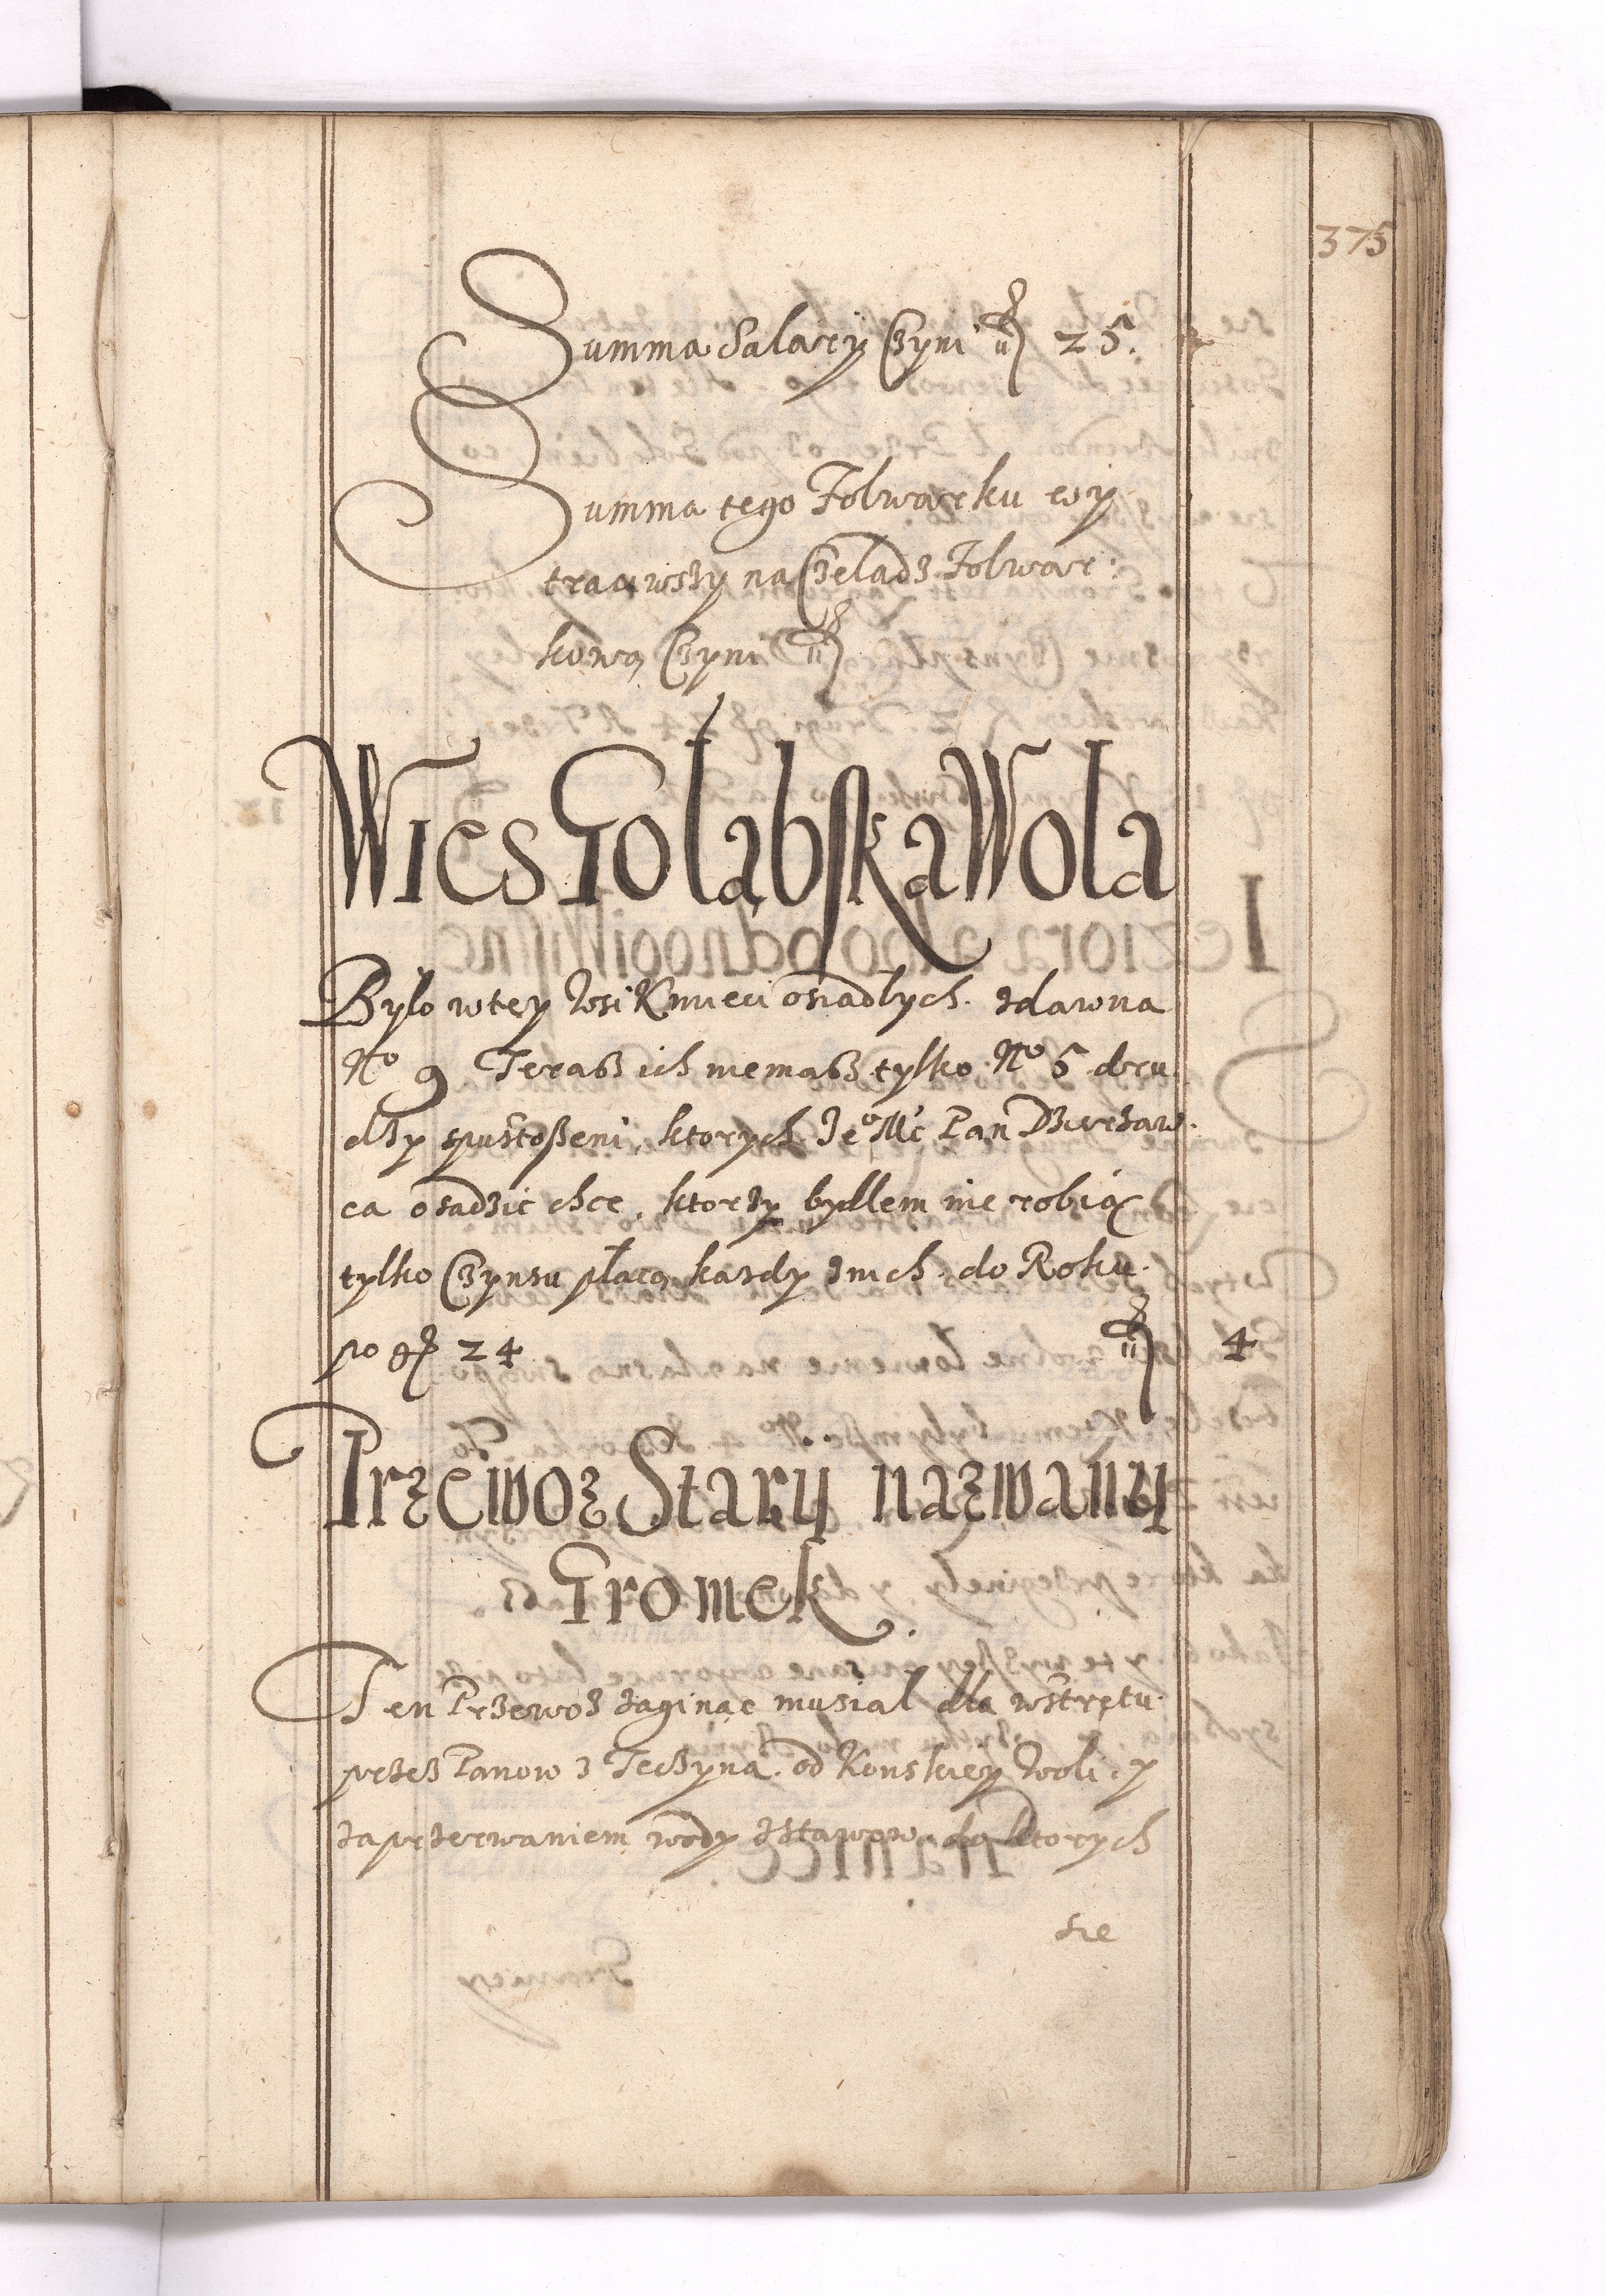 375
Summa Salary Czyni fl 25.
Summa tego Folwarku wy
trąciwszy na Czeladz Folwar:
kową Czyni fl
Wies Goląbska Wola
Bylo wtey Wsi Kmieci osiadlych zdawna
No 9 Terasz ich niemasz tylko No 5 dru
dzy spustoszeni, ktorych Jeo Mć Pan Dzierzaw.
ca osadzić chce, ktorzy bydłem nie robią
tylko Czynsu płacą kazdy znich do Roku
po gr 24 fl 4
Przewoz Stary nazwany
Gromek.
Ten Przewoz zaginąc musiał dla wstrętu
przez Panow z Teczyna od Konskiey Woli, y
zaprzerwaniem wody zstawow, do ktorych
sie